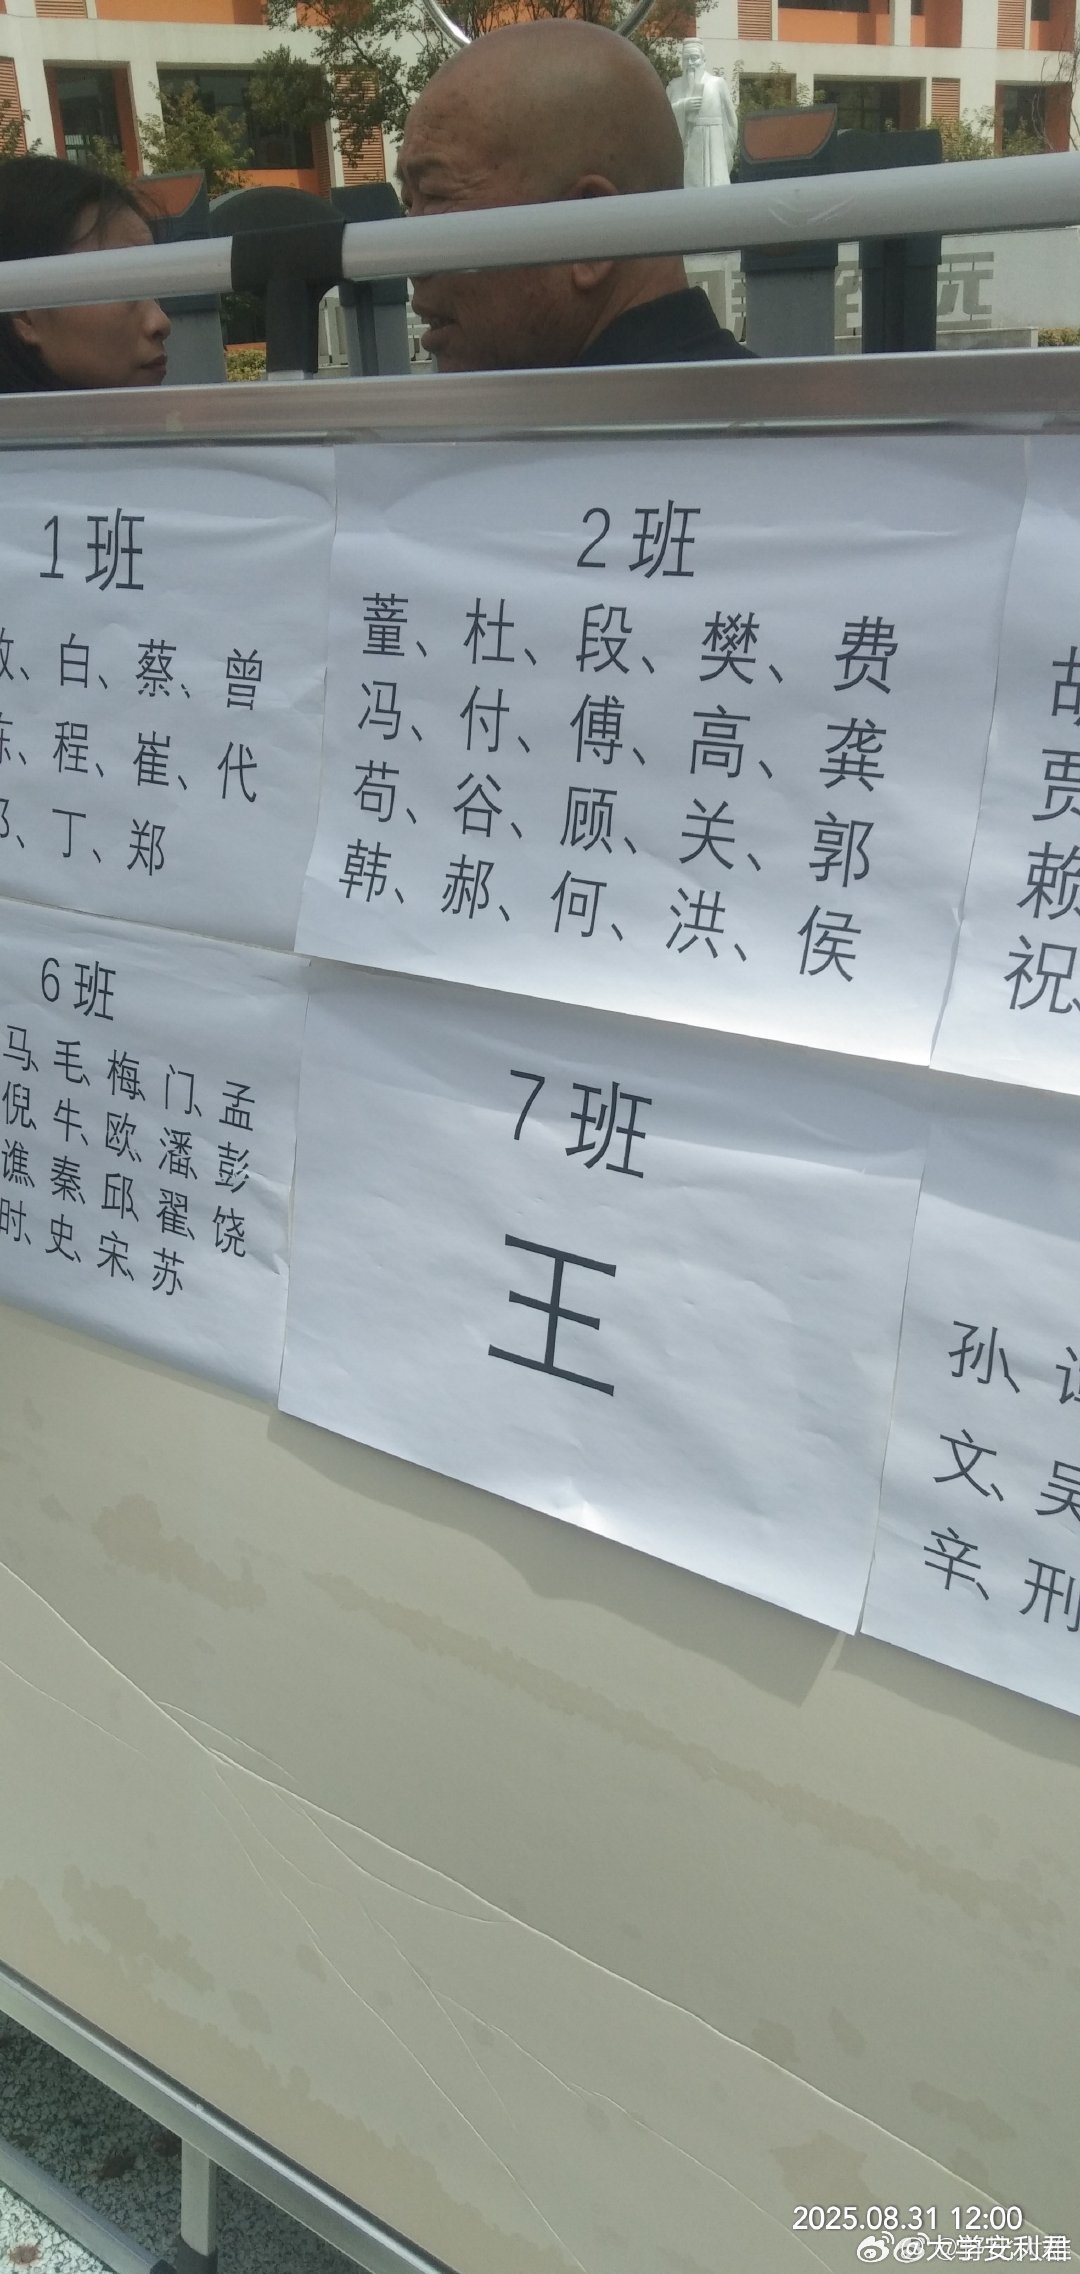 1班
、白、蔡、曾
、程、崔、代
、丁、郑
2班
董、杜、段、樊、费
冯、付、傅、高、龚
苟、谷、顾、关、郭
韩、郝、何、洪、侯
胡
贾
赖
祝、
6班
马、毛、梅、门、孟
倪、牛、欧、潘、彭
谯、秦、邱、翟、饶
时、史、宋、苏
7班
王
孙、
文、吴
辛、刑
2025.08.31 12:00
@大学安利群